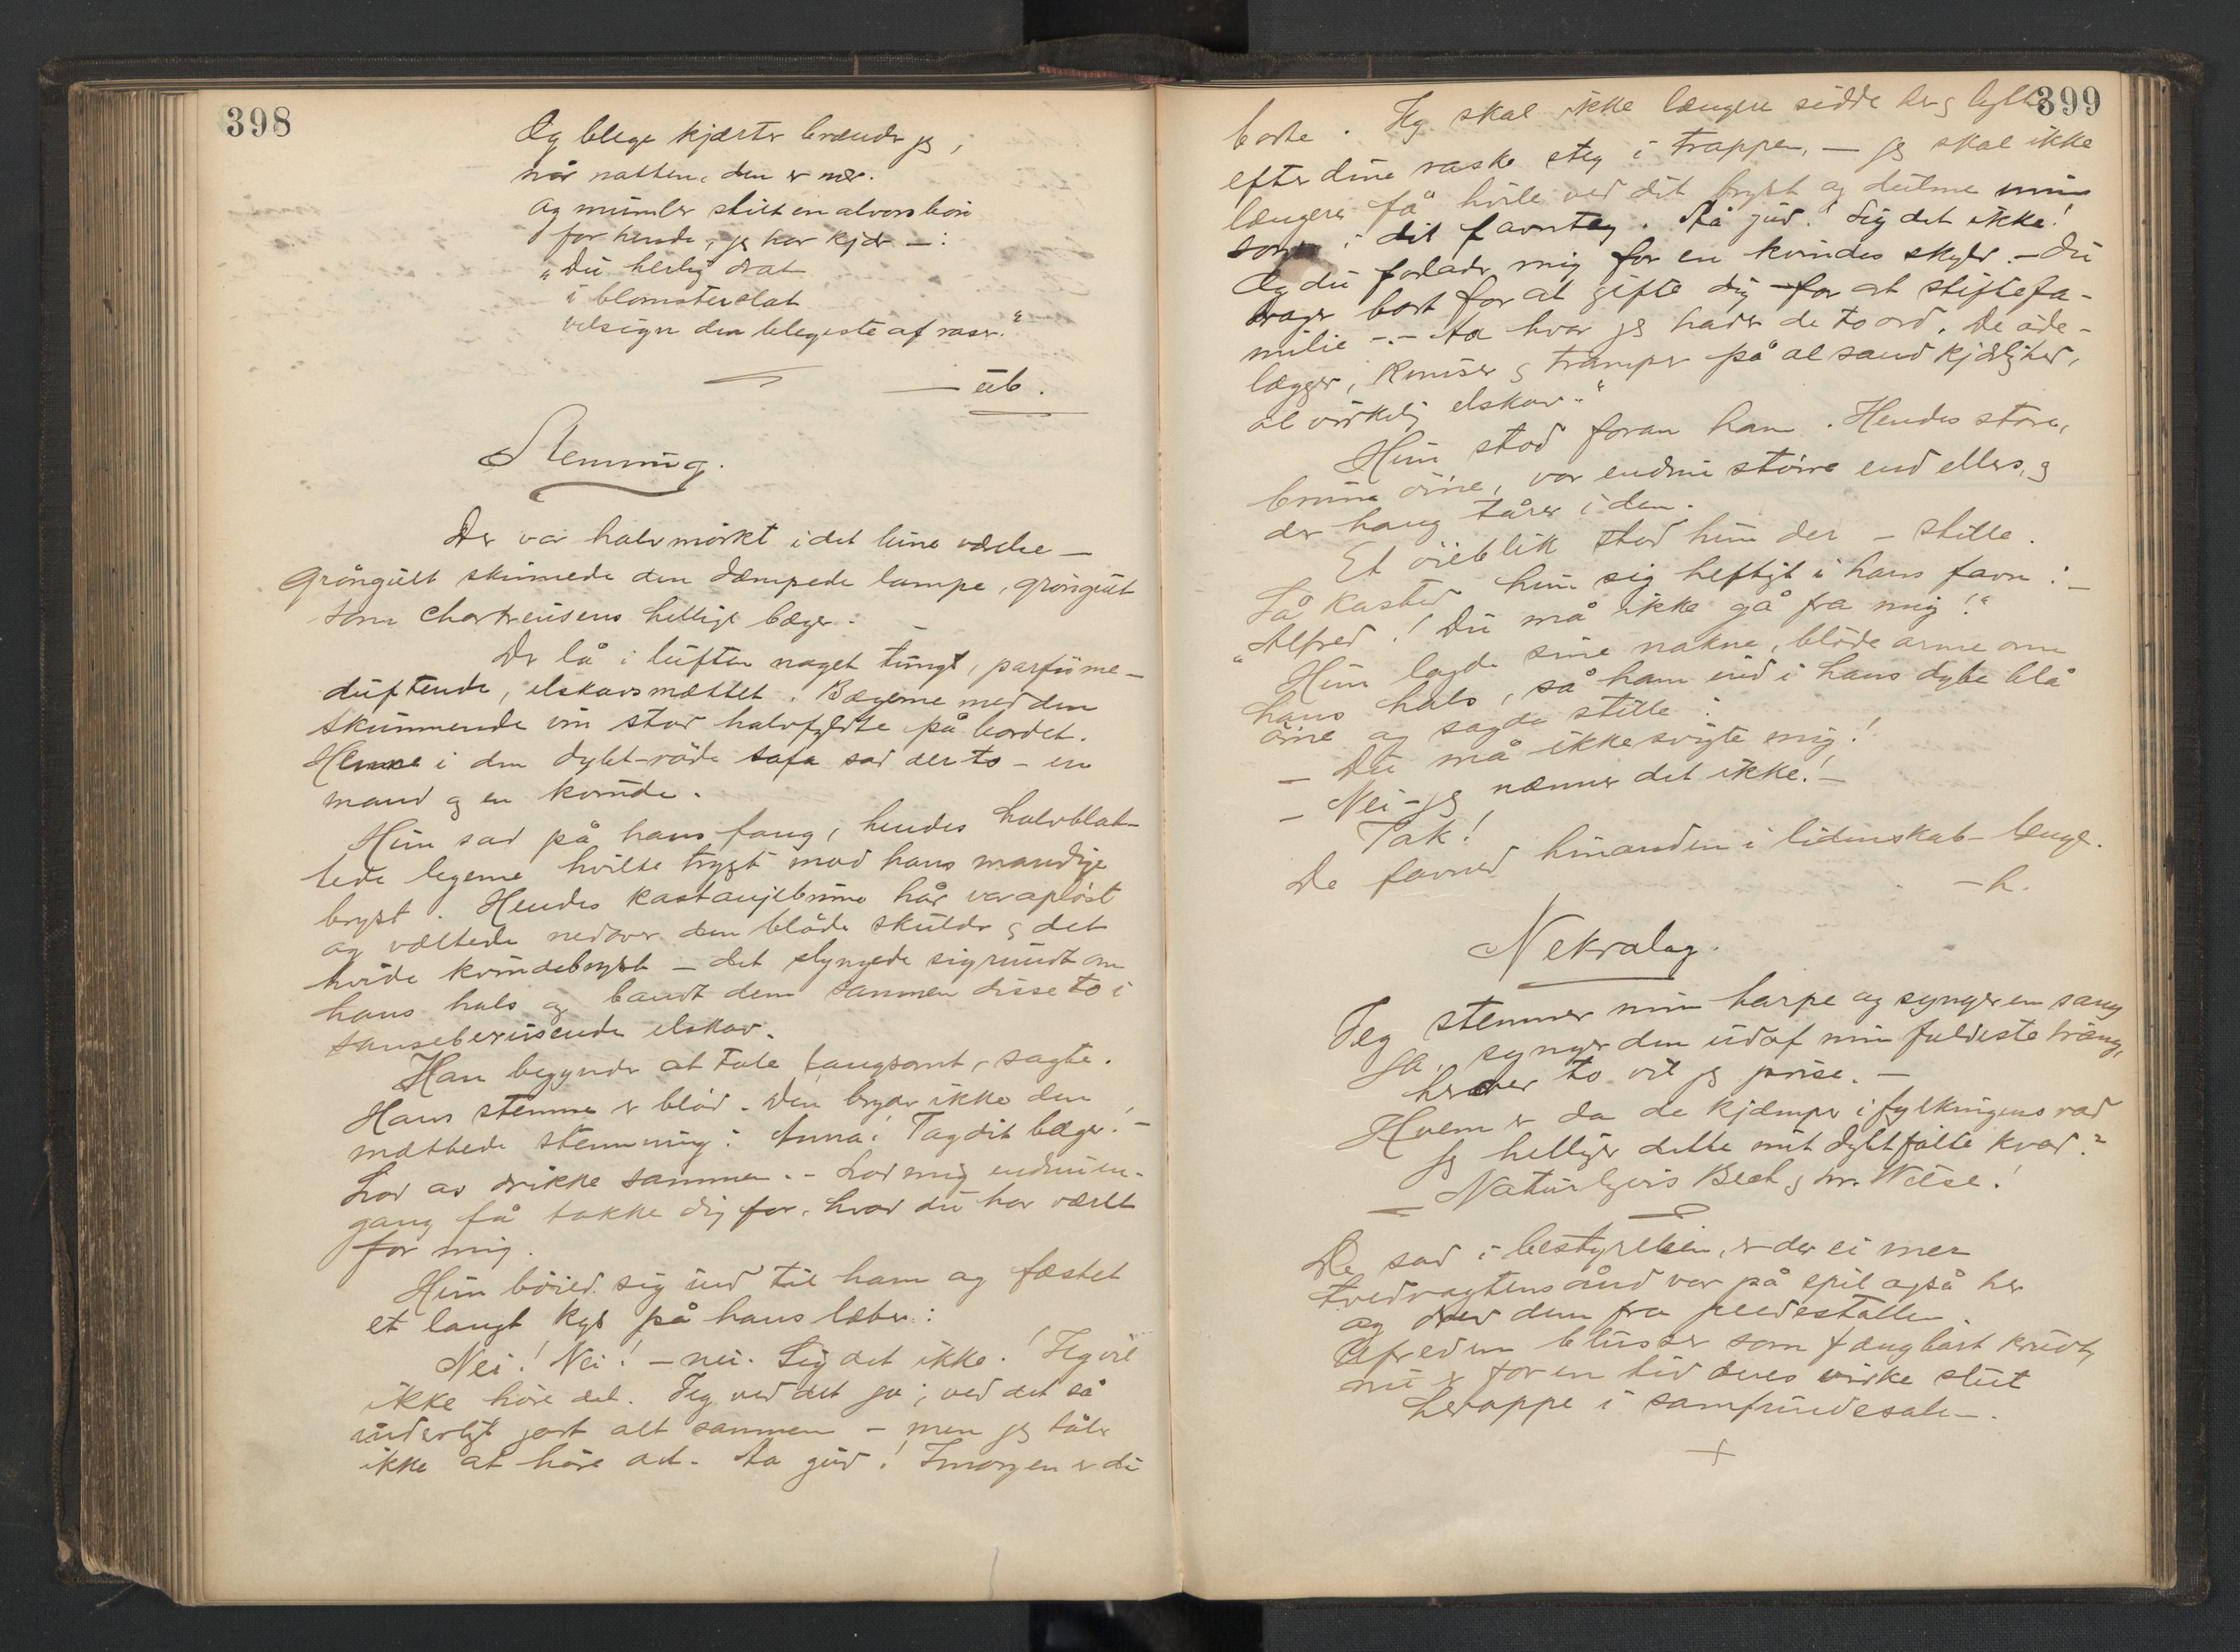 398
Og blege kjærter brænder jeg,
når natten, den er nær.
og mumler stilt en alvors bøn
for hende, jeg har kjær —:
"Du herlig drat
i blomsterslat
velsign den blegeste af roser."
— ub.
Stemning.
Der var halvmörkt i det lune værelse —
gröngult skinnede den dæmpede lampe, gröngult
som chartreusens hellige bæger. —
Der lå i luften noget tungt, parfüme-
duftende, elskovsmættet. Bægerne med den
skummende vin stod halvfyldte på bordet.
Henne i den dybt-röde sofa sad der to – en
mand og en kvinde.
Hun sad på hans fang, hendes halvblot-
tede legeme hvilte trygt mod hans mandige
bryst. Hendes kastanjebrune hår var oplöst
og væltede nedover den blöde skulder og det
hvide kvindebryst – det slyngede sig rundt om
hans hals og bandt dem sammen disse to i
sanseberusende elskov.
Han begynder at tale langsomt, sagte.
Hans stemme er blöd. Den bryder ikke den
mættede stemning: Anna! Tag dit bæger! –
Lad os drikke sammen. – Lad mig endnu en-
gang få takke dig for, hvad du har været
for mig.
Hun böied sig ind til ham og fæstet
et langt kys på hans læber:
Nei! Nei! – nei. Sig det ikke! Jeg vil
ikke höre det. Jeg ved det jo; ved det så
inderligt godt alt sammen – men jeg tåler
ikke at höre det. Aa gud! Imorgen er du
399
borte. Jeg skal ikke længere sidde her og lytte
efter dine raske steg i trappen, – jeg skal ikke
længere få hvile ved dit bryst og dulme min
sorg i dit favntag. Aa gud! Sig det ikke!
Og du forlader mig for en kvindes skyld. – Du
drager bort for at gifte dig – for at stifte fa-
milie –.– Aa hvor jeg hader de to ord. De öde-
lægger, knuser og tramper på al sand kjærlighed,
al virkelig elskov."
Hun stod foran ham. Hendes store,
brune öine, var endnu större end ellers, og
der hang tårer i dem.
Et öieblik stod hun der – stille.
Så kasted hun sig heftigt i hans favn: –
"Alfred! Du må ikke gå fra mig!"
Hun lagde sine nakne, blöde arme om
hans hals, så ham ind i hans dybe blå
öine og sagde stille:
– Du må ikke svigte mig!
– Nei – jeg nænner det ikke! –
Tak!
De favned hinanden i lidenskab – længe.
– h.
Nekrolog.
Jeg stemmer min harpe og synger en sang
Ja, synger den ud af min fuldeste trang,
heroer to vil jeg prise. –
Hvem er da de kjæmper i fylkingens rad
jeg helliger dette mit dybtfölte kvad?
– Naturligvis Bech og hr. Wiese!
De sad i bestyrelsen, er der ei mer
tvedragtens ånd var på spil også her
og drev dem fra piedestallen.
Ufreden blusser som fængbart krudt,
nu er for en tid deres virke slut
heroppe i samfundssalen –.